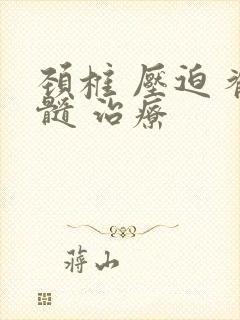 頚椎 壓迫 脊
髓 治療
蔣山